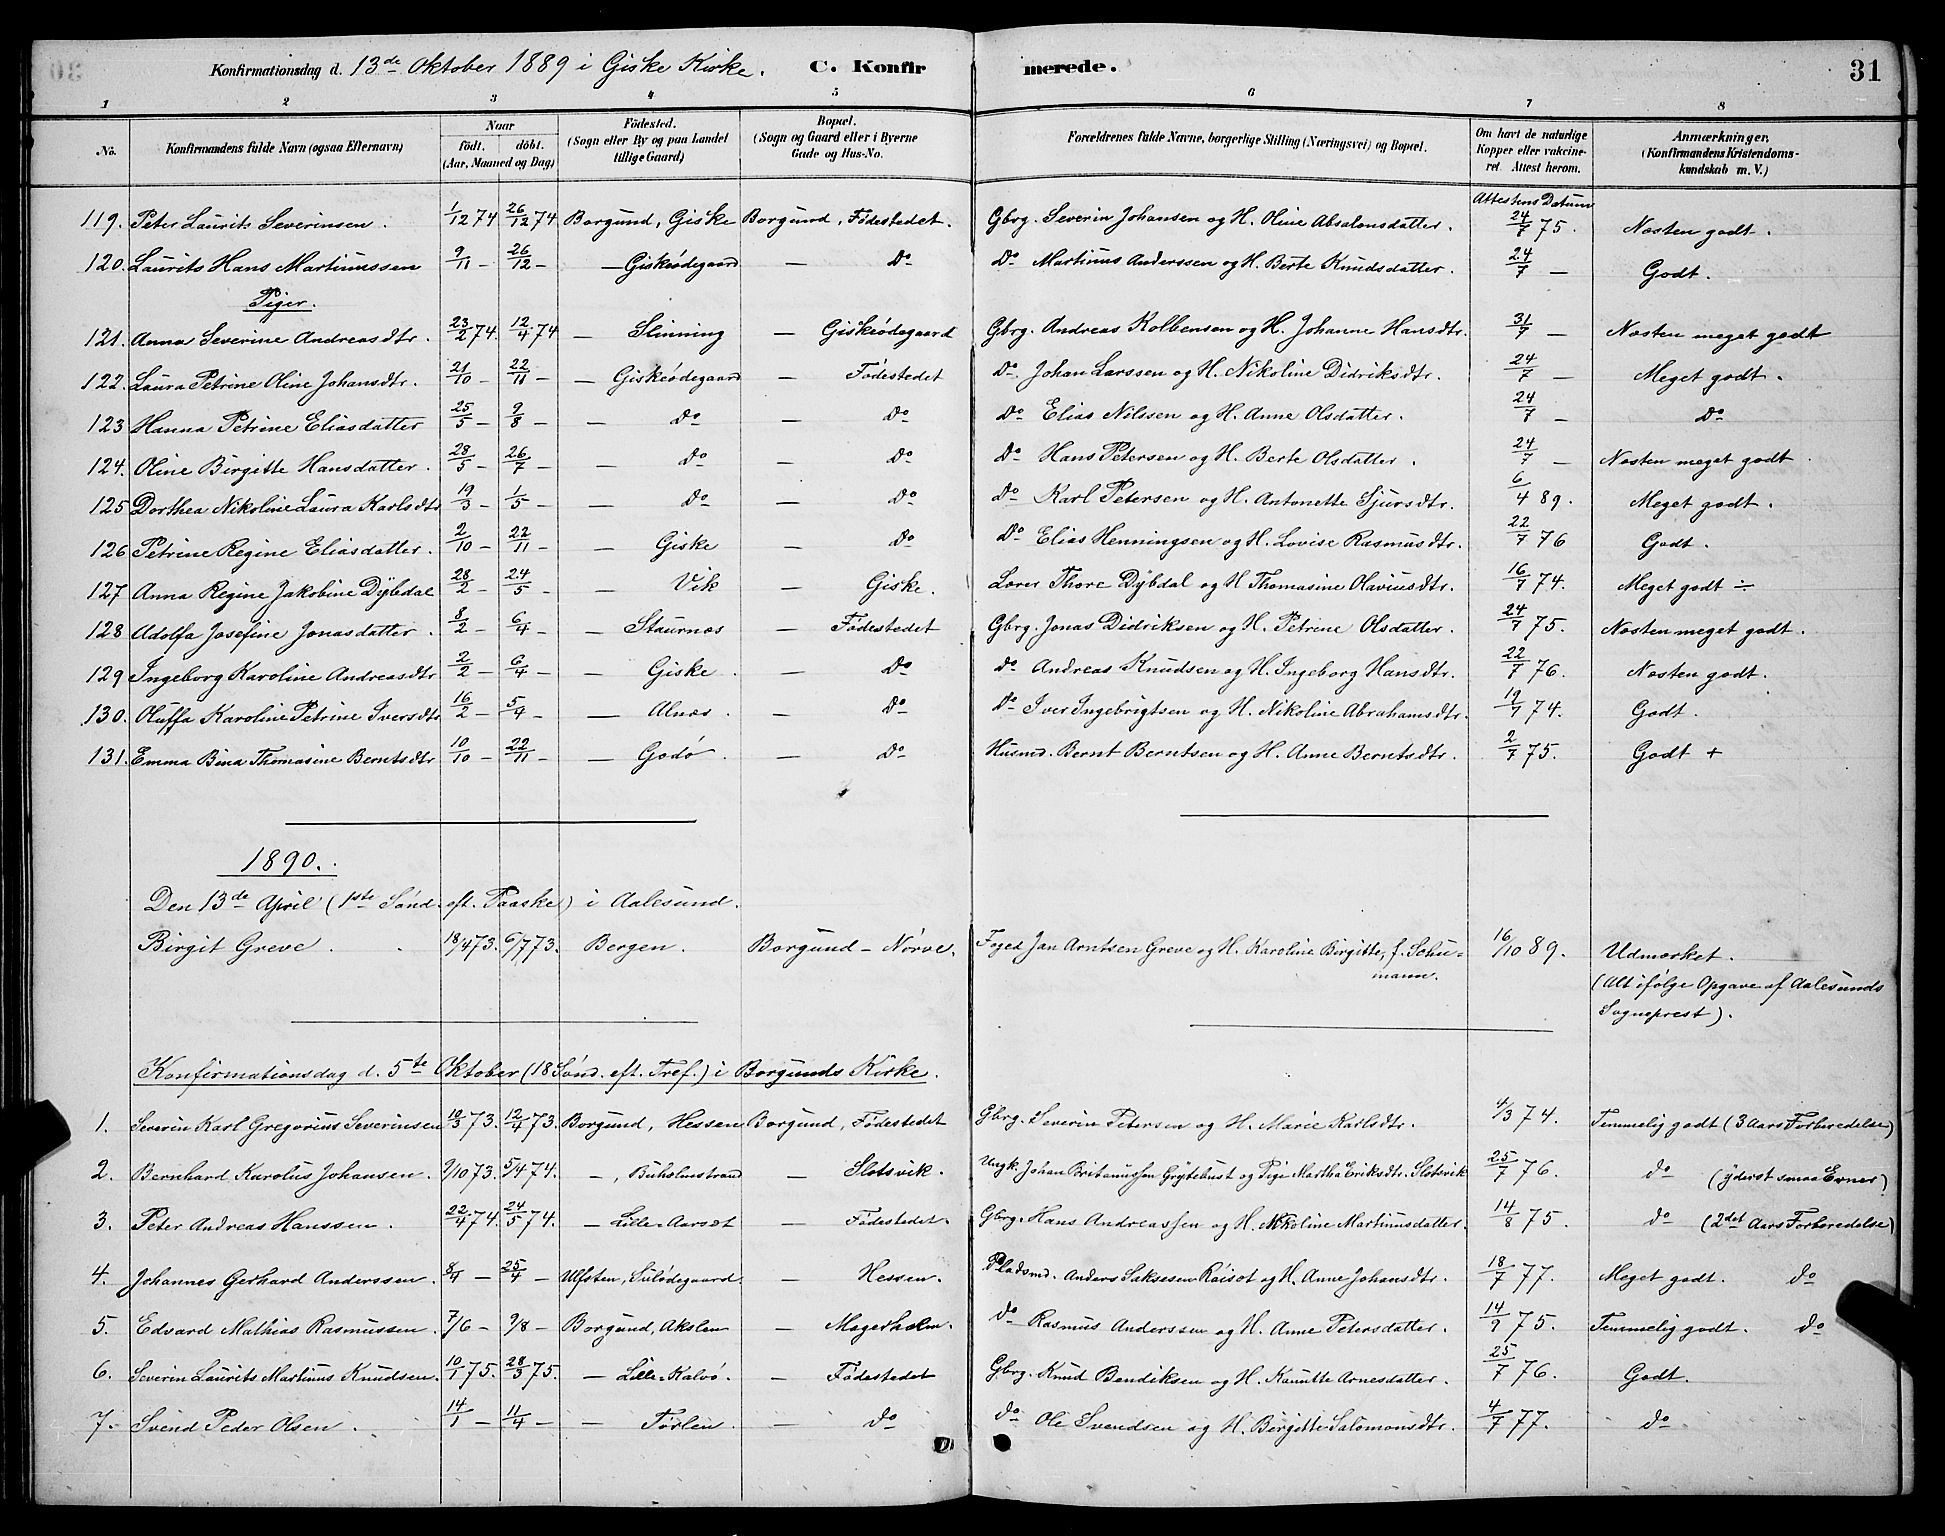 Konfirmationsdag d. 13de Oktober 1889 i Giske Kirke. C. Konfirmerede. 31
1 2 3 4 5 6 7 8
No. Konfirmandens fulde Navn (ogsaa Efternavn) Naar födt. döbt. (Aar, Maaned og Dag) Födested. (Sogn eller By og paa Landet tillige Gaard) Bopæl. (Sogn og Gaard eller i Byerne Gade og Hus-No. Forældrenes fulde Navne, borgerlige Stilling (Næringsvei) og Bopæl. Om havt de naturlige Kopper eller vakcineret. Attest herom. Anmærkninger, (Konfirmandens Kristendomskundskab m. V.)
Attestens Datum
119. Peter Laurits Severinsen. 1/12 74 26/12 74 Borgund, Giske Borgund, Fødestedet. Gbrg. Severin Johansen og H. Oline Absalonsdatter. 24/7 75. Næsten godt.
120. Laurits Hans Martinussen 9/11 – 26/12 – – Giskeødegaard – Do Do Martinus Anderssen og H. Berte Knudsdatter. 24/7 – Godt.
Piger.
121. Anna Severine Andreasdtr. 23/2 74. 12/4 74 – Slinning – Giskeødegaard Gbrg. Andreas Kolbensen og H. Johanne Hansdtr. 31/7 – Næsten meget godt
122. Laura Petrine Oline Johansdtr. 21/10 – 22/11 – – Giskeødegaard – Fødestedet Do Johan Larssen og H. Nikoline Didriksdtr. 24/7 – Meget godt.
123 Hanna Petrine Eliasdatter 25/5 – 9/8 – – Do – Do Do Elias Nilssen og H. Anne Olsdatter. 24/7 – Do
124. Oline Birgitte Hansdatter. 28/5 – 26/7 – – Do – Do Do Hans Petersen og H. Berte Olsdatter. 24/7 – Næsten meget godt.
125 Dorthea Nikoline Laura Karlsdtr 19/3 – 1/5 – – Do – Do Do Karl Petersen og H. Antonette Sjursdtr. 6/4 89. Meget godt.
126 Petrine Regine Eliasdatter. 2/10 – 22/11 – – Giske – Do Do Elias Henningsen og H. Lovise Rasmusdtr. 22/7 76 Godt.
127 Anna Regine Jakobine Dybdal 28/2 – 24/5 – – Vik – Giske. Lærer Thore Dybdal og H Thomasine Olaviusdtr. 16/7 74. Meget godt ÷
128 Adolfa Josefine Jonasdatter. 8/2 – 6/4 – – Staurnæs – Fødestedet Gbrg. Jonas Didriksen og H. Petrine Olsdatter. 24/7 75. Næsten meget godt.
129 Ingeborg Karoline Andreasdtr 2/2 – 6/4 – – Giske. – Do do Andreas Knudsen og H. Ingeborg Hansdtr. 22/7 76. Næsten godt.
130. Oluffa Karoline Petrine Iversdtr 16/2 – 5/4 – – Alnæs. – Do Do Iver Ingebrigtsen og H. Nikoline Abrahamsdtr. 19/7 74. Godt.
131. Emma Bina Thomasine Berntsdtr 10/10 – 22/11 – – Godø. – Do Husmd. Bernt Berntsen og H. Anne Berntsdtr. 2/7 75. Godt +
1890.
Den 13de April (1ste Sønd. eft. Paaske) i Aalesund.
Birgit Greve. 18/4 73. 6/7 73. Bergen. Borgund – Nørve. Foged Jan Arntsen Greve og H. Karoline Birgitte, f. Schumann. 16/10 89. Udmærket.
(Alt ifølge Opgave af Aalesunds
Sogneprest).
Konfirmationsdag d. 5te Oktober (18 Sønd. eft. Tref.) i Borgunds Kirke.
1. Severin Karl Gregorius Severinsen 10/3 73. 12/4 73. Borgund, Hessen Borgund, Fødestedet Gbrg. Severin Petersen og H. Marie Karlsdtr. 4/3 74. Temmelig godt (3 Aars Forberedelse)
2. Bernhard Karolus Johansen. 9/10 73. 5/4 74. –, Buholmstrand – Slotsvik. Ungk. Johan Britanussen Grytebust og Pige Martha Eriksdtr. Slotsvik 25/7 76. do (yderst smaa Evner)
3. Peter Andreas Hanssen. 22/4 74. 24/5 74. – Lille-Aarset – Fødestedet. Gbrg. Hans Andreassen og H. Nikoline Martinusdatter 14/8 75. do (2det Aars Forberedelse)
4. Johannes Gerhard Anderssen. 8/4 – 25/4 – Ulfsten, Sulødegaard – Hessen. Pladsmd. Anders Saksesen Røisot og H. Anne Johansdtr. 18/7 77. Meget godt. do
5. Edvard Mathias Rasmussen. 7/6 – 9/8 – Borgund, Akslen – Magerholm. do Rasmus Anderssen og H. Anne Petersdatter. 14/9 75. Temmelig godt. do
6. Severin Laurits Martinus Knudsen. 10/1 75. 28/3 75. – Lille-Kalvø. – Fødestedet Gbrg. Knud Bendiksen og H. Kanutte Arnesdatter. 25/7 76. Godt.
7. Svend Peder Olsen. 14/1 – 11/4 – – Tørlen. – do do Ole Svendsen og H. Birgitte Salomonsdtr. 4/7 77. do